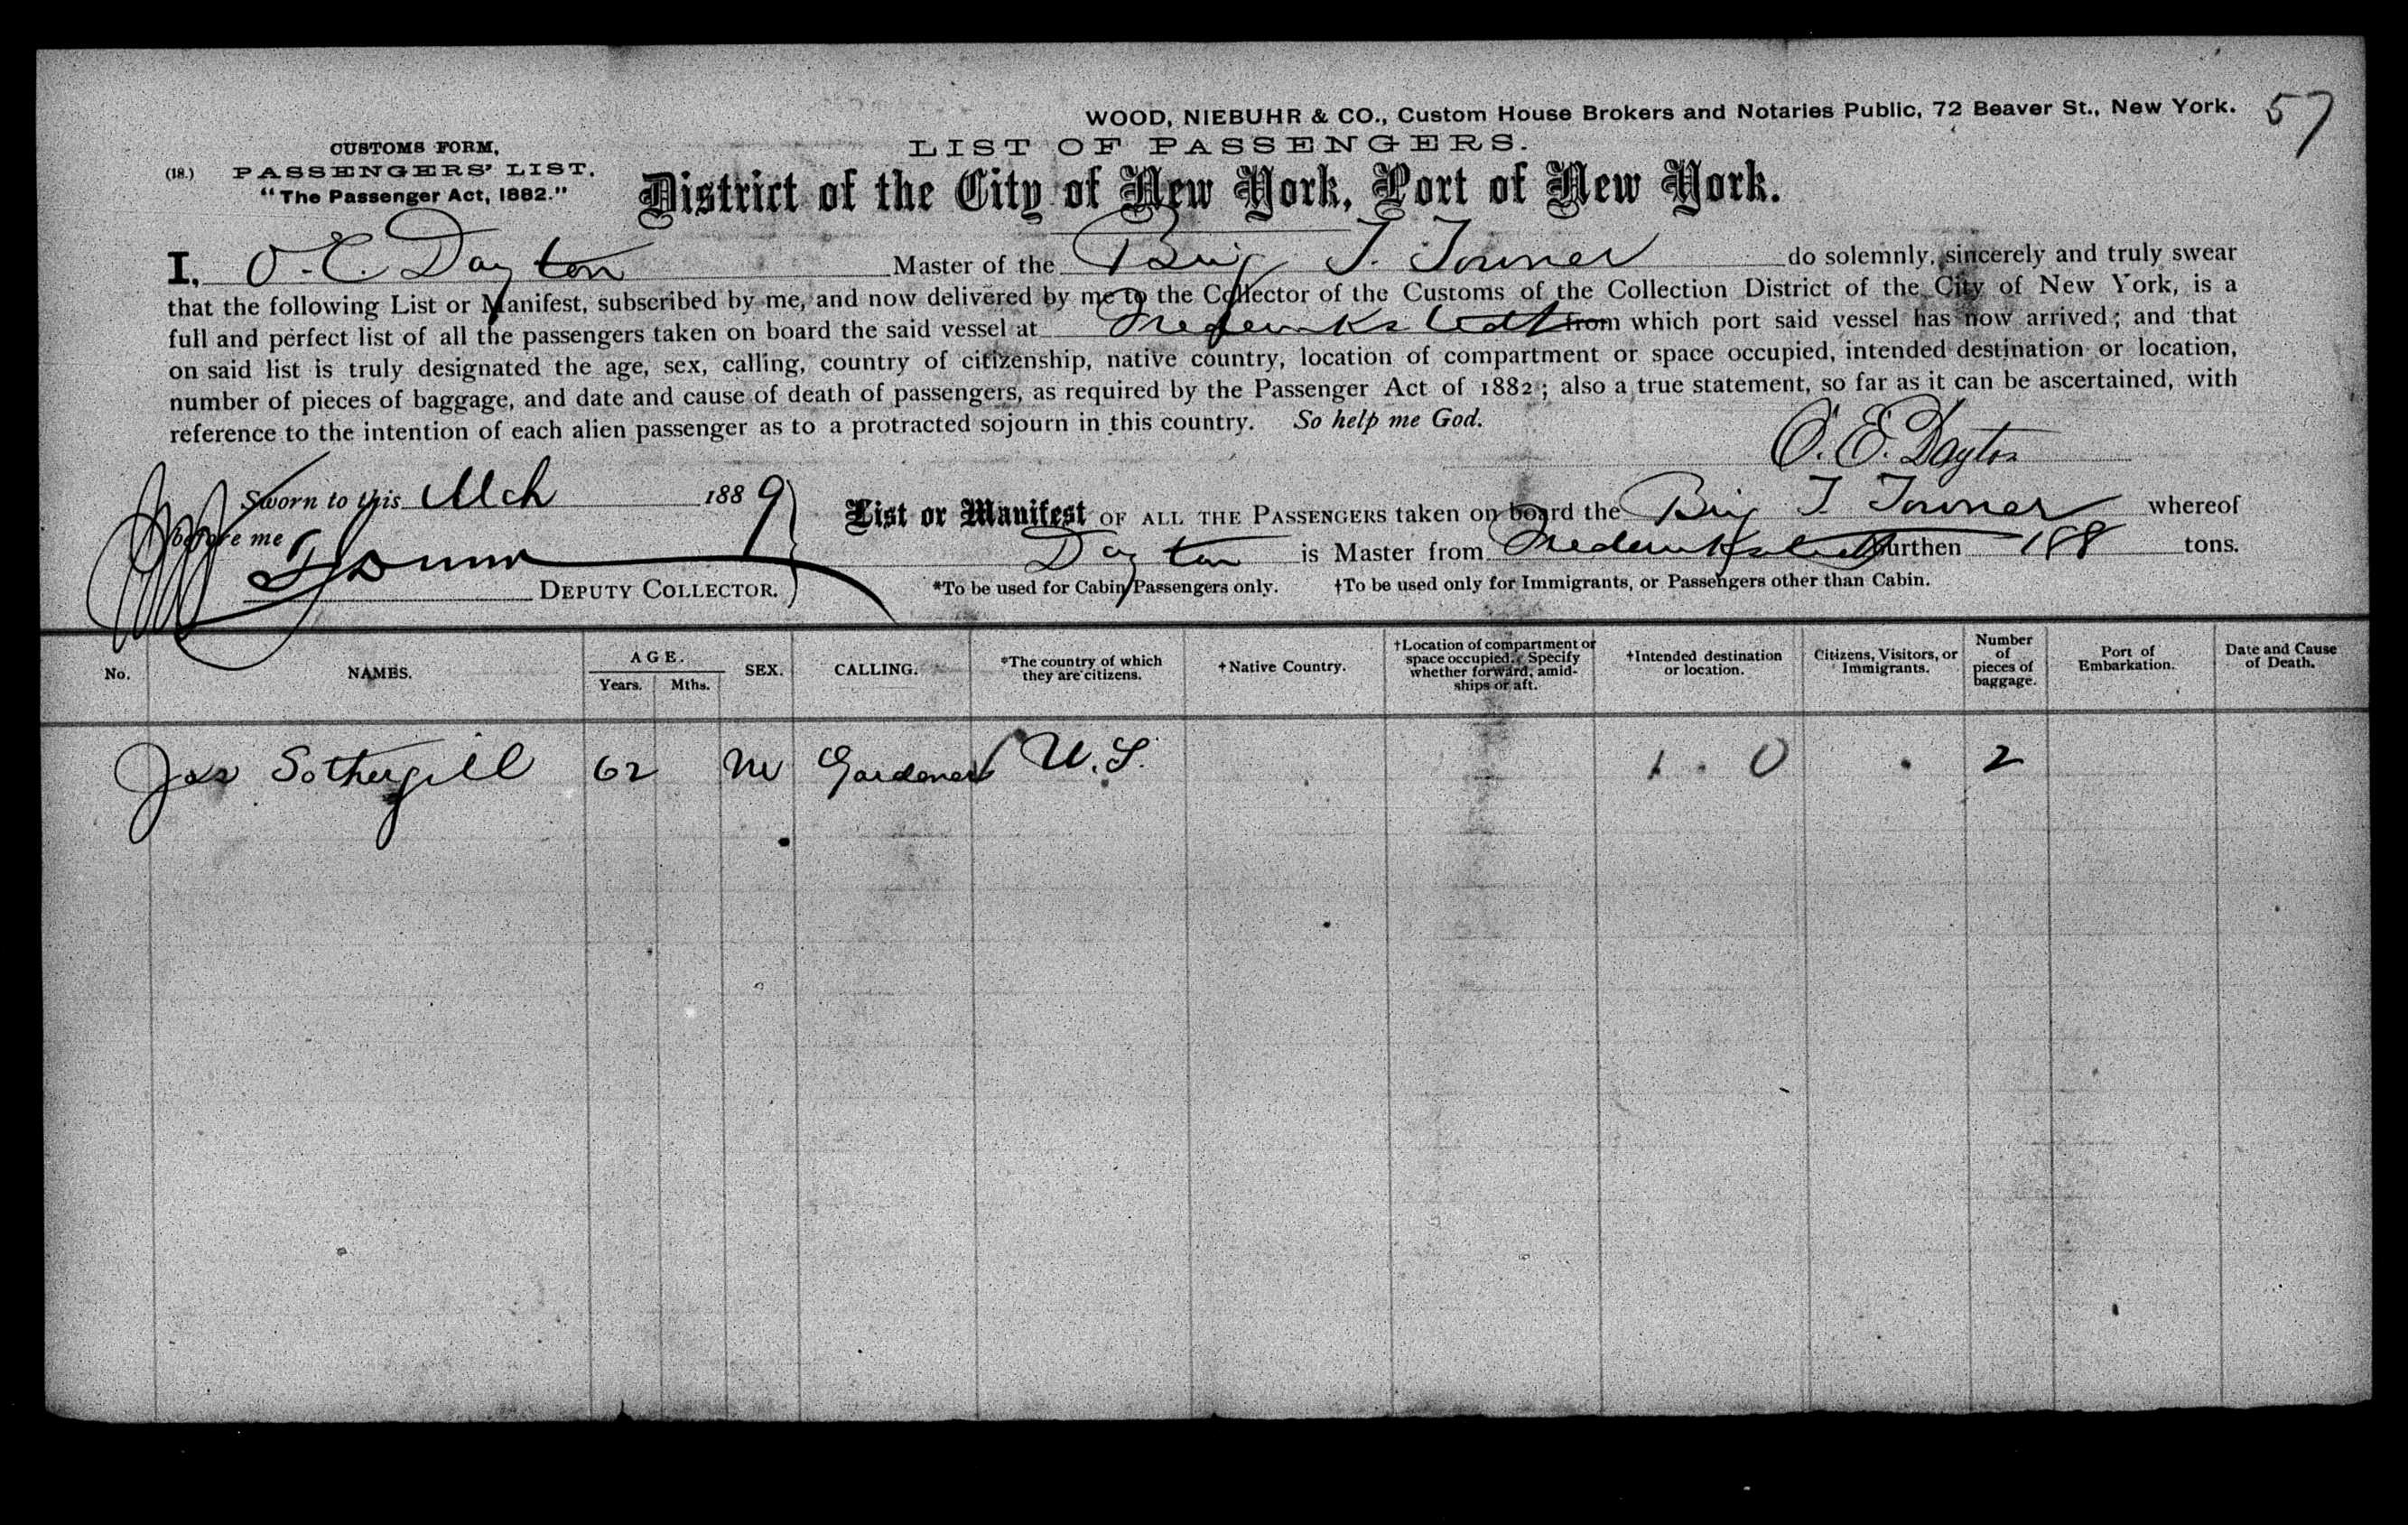 WOOD, NIEBUHR & CO., Custom House Brokers and Notaries Public, 72 Beaver St., New York.
57
CUSTOMS FORM,
(18.) PASSENGERS' LIST.
"The Passenger Act, 1882."
LIST OF PASSENGERS.
District of the City of New York, Port of New York.
I, O. E. Dayton Master of the Brig T. Towner do solemnly, sincerely and truly swear
that the following List or Manifest, subscribed by me, and now delivered by me to the Collector of the Customs of the Collection District of the City of New York, is a
full and perfect list of all the passengers taken on board the said vessel at Frederiksted from which port said vessel has now arrived; and that
on said list is truly designated the age, sex, calling, country of citizenship, native country, location of compartment or space occupied, intended destination or location,
number of pieces of baggage, and date and cause of death of passengers, as required by the Passenger Act of 1882; also a true statement, so far as it can be ascertained, with
reference to the intention of each alien passenger as to a protracted sojourn in this country. So help me God.
O. E. Dayton
Sworn to this Mch 1889
before me
DEPUTY COLLECTOR.
List or Manifest OF ALL THE PASSENGERS taken on board the Brig T Towner whereof
Dayton is Master from Frederiksted burthen 188 tons.
*To be used for Cabin Passengers only. †To be used only for Immigrants, or Passengers other than Cabin.
No. NAMES. AGE. Years. Mths. SEX. CALLING. *The country of which they are citizens. †Native Country. †Location of compartment or space occupied. Specify whether forward, amidships or aft. †Intended destination or location. Citizens, Visitors, or Immigrants. Number of pieces of baggage. Port of Embarkation. Date and Cause of Death.
Jas Sothergill 62 M Gardener U.S. 1 . 0 2